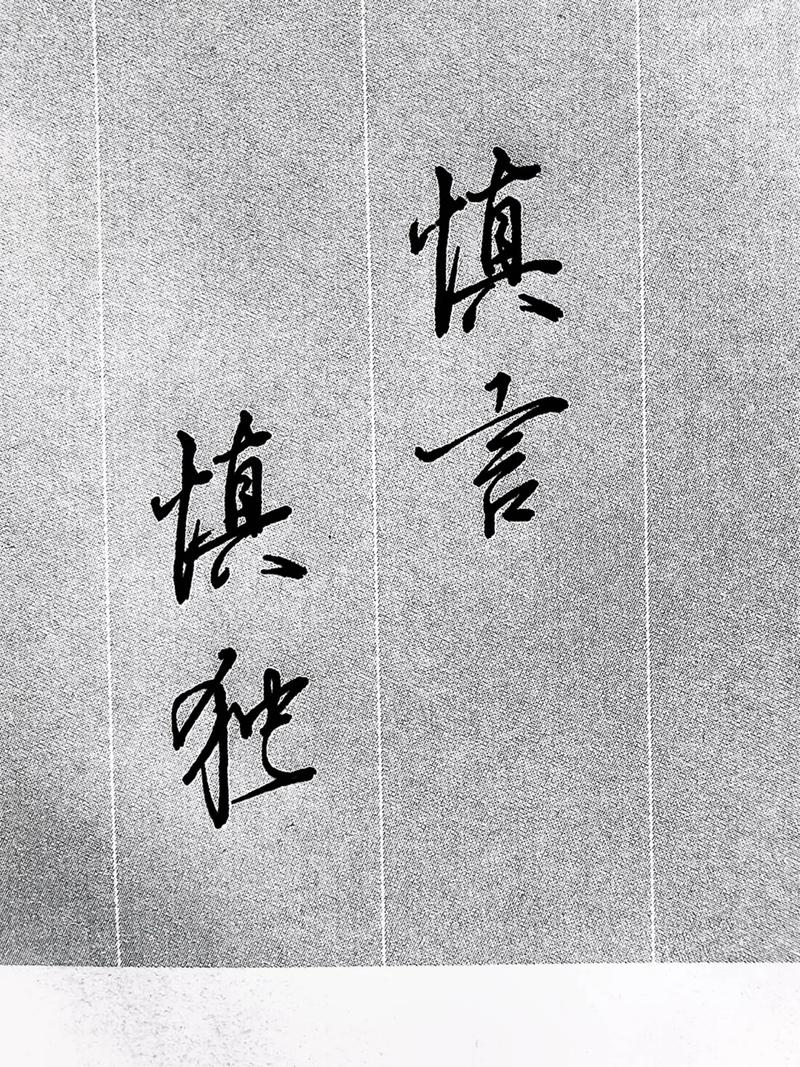 慎言
慎独